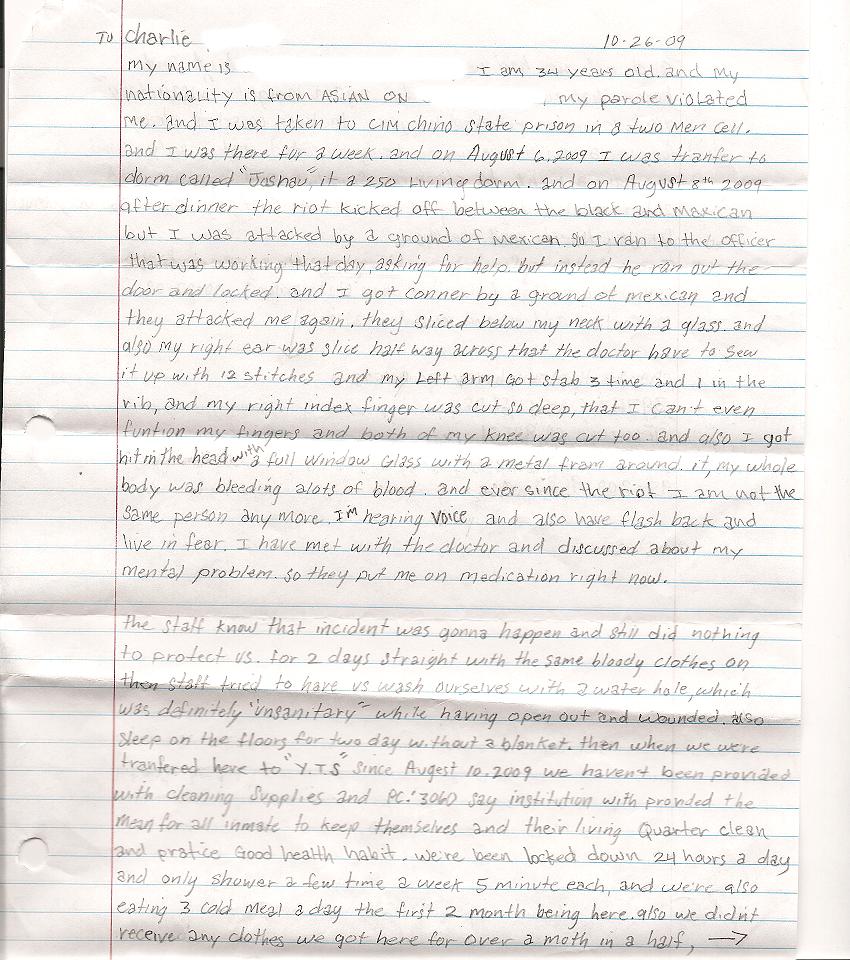 TO Charlie 10-26-09
my name is I am 34 years old. and my
nationality is from ASIAN ON , my parole violated
me. and I was taken to CIM chino state prison in a two Men cell.
and I was there for a week. and on August 6, 2009 I was tranfer to
dorm called "Joshau", it a 250 Living dorm. and on August 8th 2009
after dinner the riot kicked off between the black and Maxican
but I was attacked by a ground of Mexican. so I ran to the officer
that was working that day, asking for help. but instead he ran out the
door and locked. and I got conner by a ground of mexican and
they attacked me again. they sliced below my neck with a glass. and
also my right ear was slice half way across that the doctor have to sew
it up with 12 stitches and my Left arm Got stab 3 time and 1 in the
rib, and my right index finger was cut so deep, that I can't even
funtion my fingers and both of my knee was cut too. and also I got
hit in the head with a full window Glass with a metal fram around. it, my whole
body was bleeding alots of blood. and ever since the riot I am not the
same person any more. I'm hearing voice and also have flash back and
live in fear. I have met with the doctor and discussed about my
mental problem. so they put me on medication right now.
the staff know that incident was gonna happen and still did nothing
to protect us. for 2 days straight with the same bloody clothes on
then staff tried to have us wash ourselves with a water hole, which
was definitely "unsanitary" while having open out and wounded. also
sleep on the floors for two day without a blanket. then when we were
tranfered here to "Y.T.S" since Augest 10. 2009 we haven't been provided
with cleaning supplies and PC. 3060 say institution with provded the
mean for all inmate to keep themselves and their living Quarter clean
and pratice Good health habit. we're been locked down 24 hours a day
and only shower a few time a week 5 minute each, and we're also
eating 3 cold meal a day the first 2 month being here. also we didn't
receive any clothes we got here for over a moth in a half, →